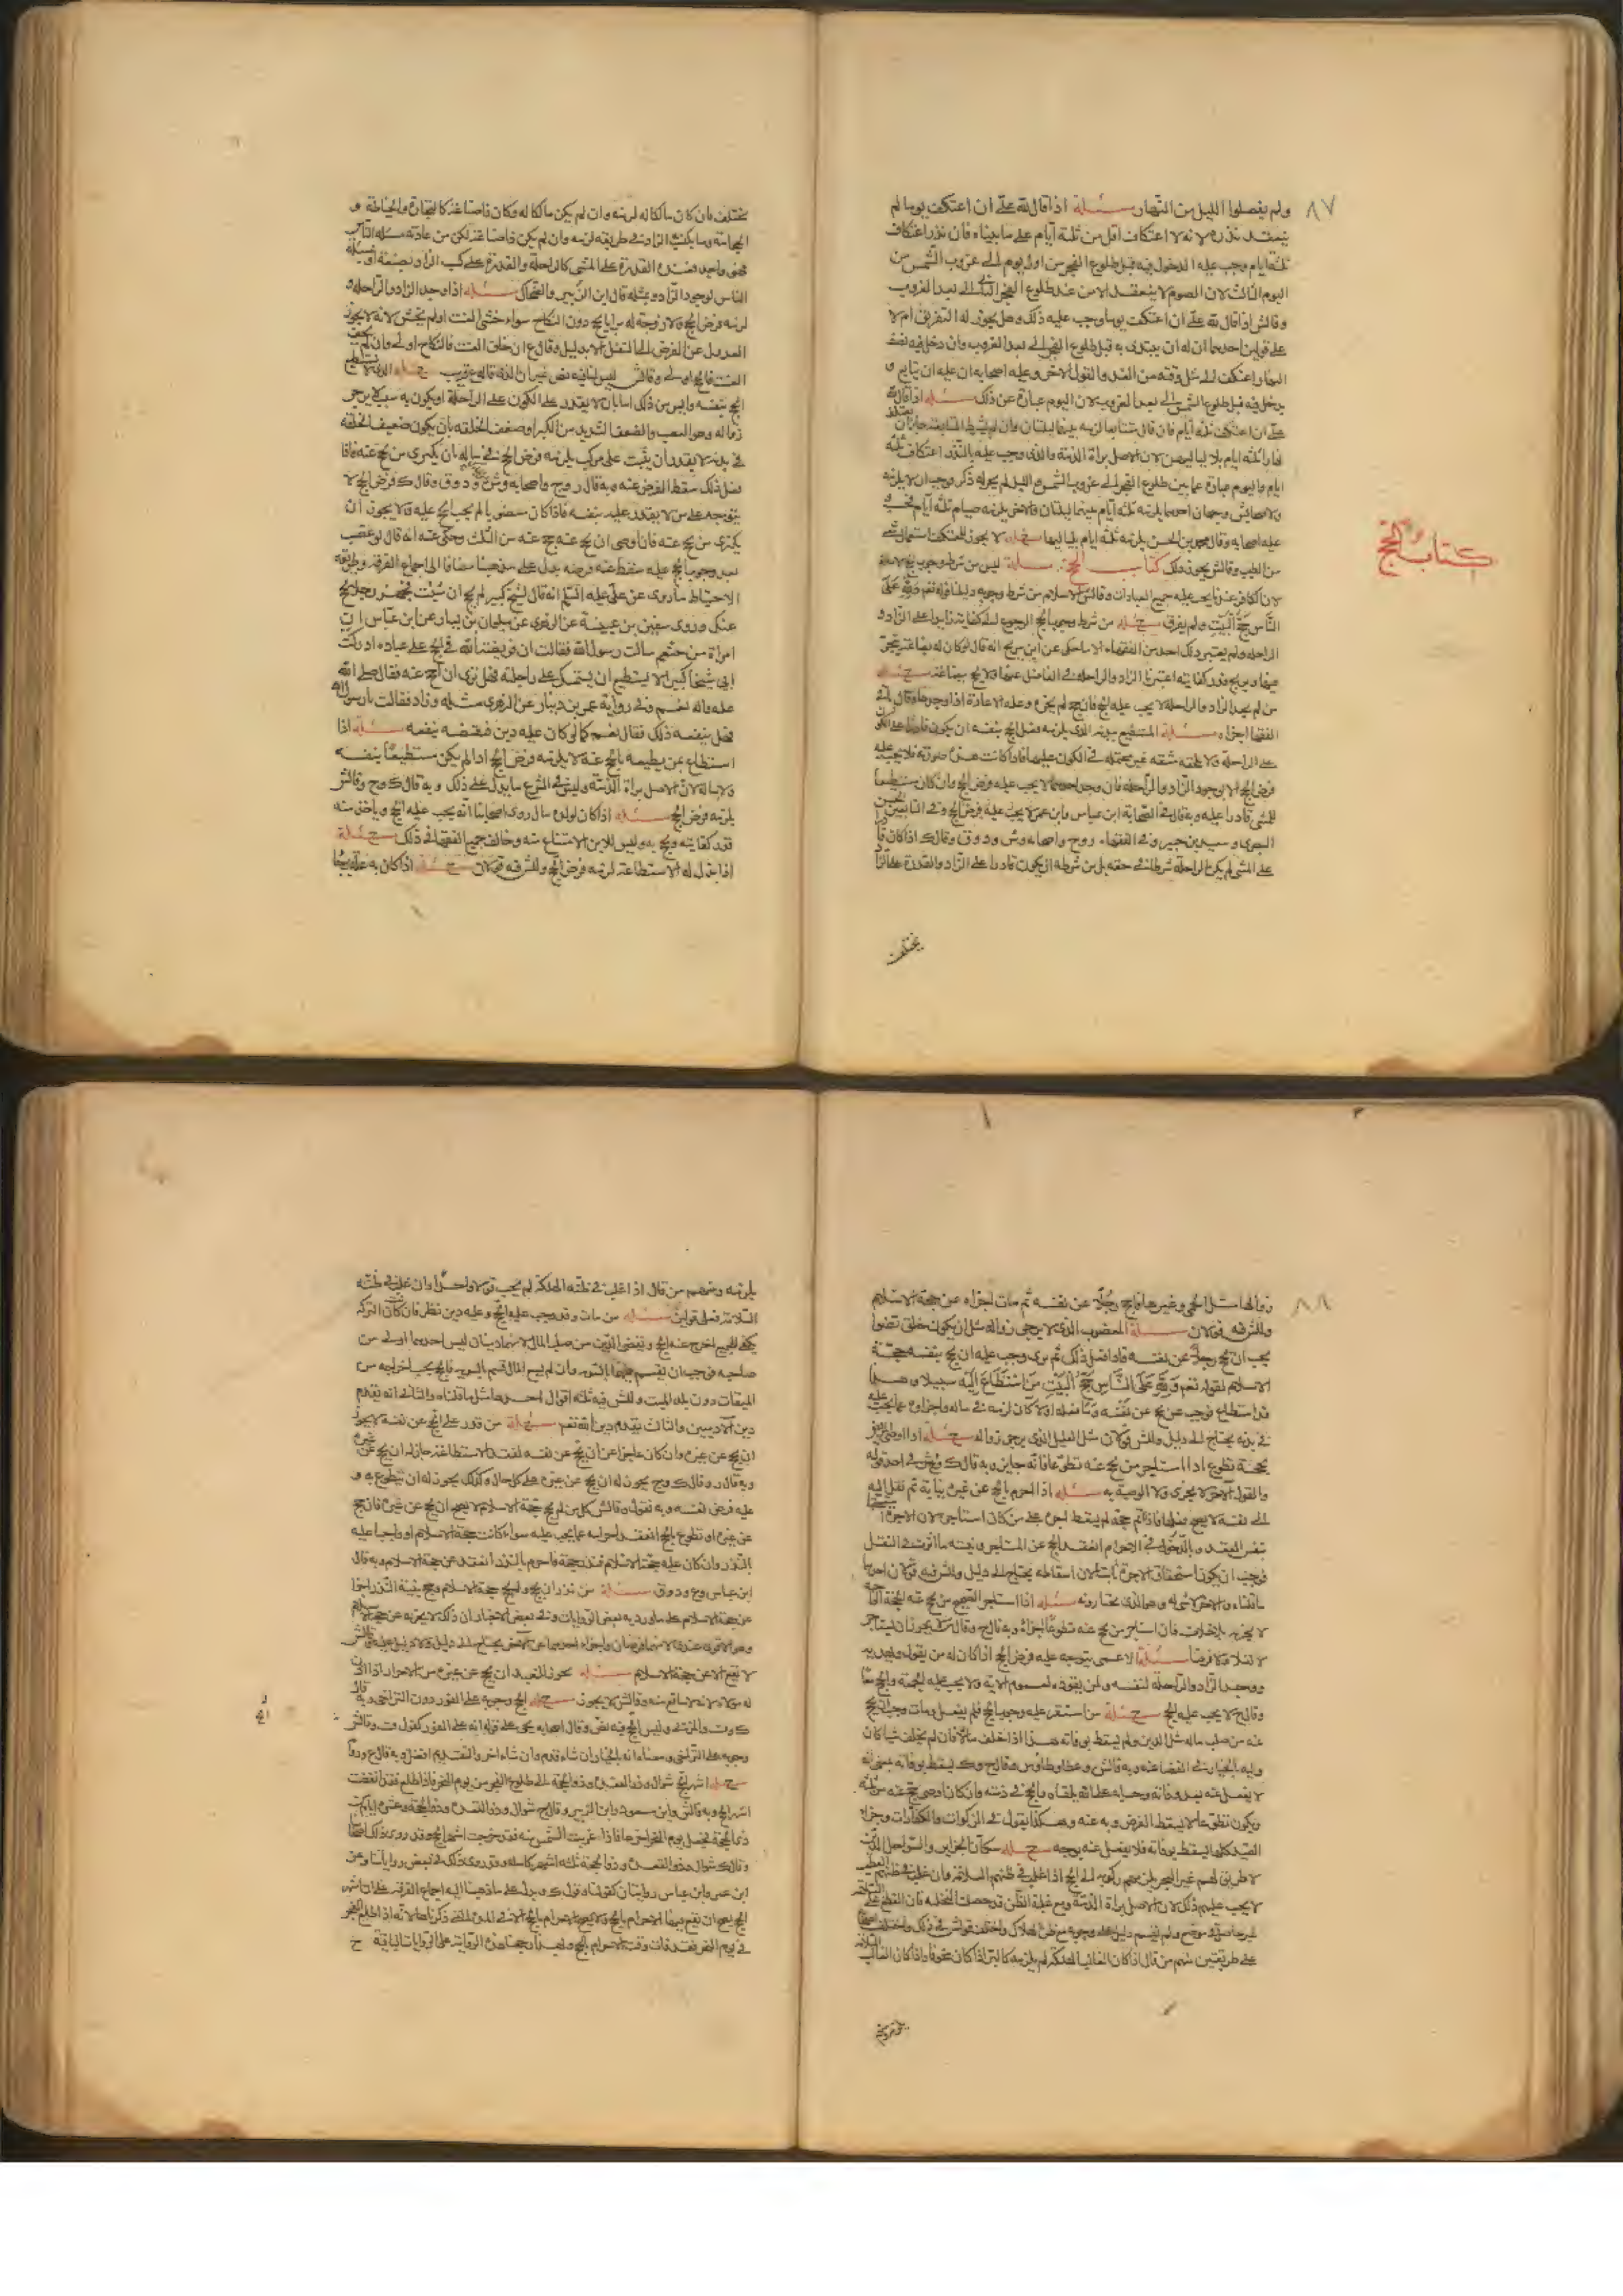 ٨٧
ولم يفصلوا الليل من النهار مسئلة اذا قال لله علىّ ان اعتكف يوما لم
ينعقد نذره لانه لا اعتكاف اقل من ثلثة ايام على ما بيناه فان نذر اعتكاف
ثلثة ايام وجب عليه الدخول فيه قبل طلوع الفجر من اول يوم الى غروب الشمس من
اليوم الثالث لان الصوم لا ينعقد الا من عند طلوع الفجر الى بعد الغروب
وقال ش اذا قال لله علىّ ان اعتكف يوما وجب عليه ذلك وهل يجوز له التفريق ام لا
على قولين احدهما ان له ان يبتدئ به قبل طلوع الفجر الى بعد الغروب وان دخل فيه نصف
النهار اعتكف الى مثل وقته من الغد والقول الاخر وعليه اصحابه ان عليه ان يتابع و
يدخل فيه قبل طلوع الشمس الى بعد الغروب لان اليوم عبارة عن ذلك مسئلة اذا قال لله
علىّ ان اعتكف ثلثة ايام فان قال متتابعا لزمه بينها ليلتان وان لم يشرط المتابعة جاز ان
ايام واليوم عبارة عما بين طلوع الفجر الى غروب الشمس
ولاصحاب ش وجهان احدهما يلزمه ثلثة ايام بينهما ليلتان والاخر يلزمه صيام ثلثة ايام فحسب
عليه اصحابه وقال محمد بن الحسن يلزمه ثلثة ايام بلياليها مسئلة لا يجوز للمعتكف استعمال شئ
من الطيب وقال ش يجوز ذلك كتاب الحج مسئلة ليس من شرط وجوب الحج الاسلام
كتاب الحج
لان الكافر عندنا يجب عليه جميع العبادات وقال ش الاسلام من شرط وجوبه دليلنا قوله تعم ولله على
الناس حج البيت ولم يفرق مسئلة من شرط وجوب الحج الرجوع الى كفاية زايدا على الزاد و
الراحلة ولم يعتبر ذلك احد من الفقهاء الا ما حكى عن ابن سريج انه قال لو كان له بضاعة يتجر
من لم يجد الزاد والراحلة لا يجب عليه الحج فان حج لم يجزه وعليه الاعادة اذا وجدهما وقال باقي
الفقهاء اجزاه مسئلة المستطيع ببدنه الذى يلزمه فعل الحج بنفسه ان يكون قادرا على الكون
على الراحلة ولا يلحقه مشقة غير محتملة في الكون عليها فاذا كانت هذه صورته فلا يجب عليه
فرض الحج الا بوجود الزاد والراحلة فان وجد احدهما لا يجب عليه فرض الحج وان كان مستطيعا
للمشى قادرا عليه وبه قال في الصحابة ابن عباس وابن عمر لا يجب عليه فرض الحج وفي التابعين الحسن
البصرى وسعيد بن جبير وفي الفقهاء روح واصحابه وش ود وق وقال ك اذا كان قادرا
على المشى لم يكن الراحلة شرطا في حقه بل من شرطه ان يكون قادرا على الزاد والقدرة على الزاد
يختلف
يختلف فان كان مالكا له لزمه وان لم يكن مالكا له وكان ذا صناعة كالتجارة والخياطة و
الحجامة وما يكتسب الزاد في طريقه لزمه وان لم يكن ذا صناعة لكن من عادته مسئلة الناس
فهو واجد فعنده القدرة على المشى كالراحلة والقدرة على كسب الزاد بصنعة او مسئلة
الناس لوجود الزاد وبمثله قال ابن الزبير والضحاك مسئلة اذا وجد الزاد والراحلة و
لزمه فرض الحج ولا زوجة له بدأ بالحج دون النكاح سواء خشى العنت او لم يخش لانه لا يجوز
العدول عن الفرض الى النفل الا بدليل وقال ع ان خاف العنت فالنكاح اولى وان لم يخف
العنت فالحج اولى وقال ش ليس لنا فيه نص غير ان الذى قاله ع قريب مسئلة الذى لا يستطيع
الحج بنفسه وايس من ذلك اما بان لا يقدر على الكون على الراحلة او يكون به سبب لا يرجى
زواله وهو العضب والضعف الشديد من الكبر او ضعف الخلقة بان يكون ضعيف الخلقة
في بدنه لا يقدر ان يثبت على مركب يلزمه فرض الحج في ماله بان يكترى من يحج عنه فاذا
فعل ذلك سقط الفرض عنه وبه قال روح واصحابه وش ود وق وقال ك فرض الحج لا
يتوجه على من لا يقدر عليه بنفسه فاذا كان معضوبا لم يجب الحج عليه ولا يجوز ان
يكترى من يحج عنه فان اوصى ان يحج عنه حج عنه من الثلث وحكى عنه انه قال لو عضب
بعد وجوب الحج عليه سقط عنه فرضه يدل على مذهبنا مضافا الى اجماع الفرقة وطريقة
الاحتياط ما روى عن على عليه السلم انه قال لشيخ كبير لم يحج ان شئت فجهز رجلا يحج
عنك وروى سفين بن عيينة عن الزهرى عن سليمان بن يسار عن ابن عباس ان
امراة من خثعم سالت رسول الله فقالت ان فريضة الله في الحج على عباده ادركت
ابى شيخا كبيرا لا يستطيع ان يستمسك على راحلته فهل ترى ان احج عنه فقال صلى الله
عليه واله نعم وفي رواية عمر بن دينار عن الزهرى مثله وزاد فقالت يا رسول الله
فهل ينفعه ذلك فقال نعم كما لو كان عليه دين فقضيته ينفعه مسئلة اذا
استطاع بمن يطيعه بالحج عنه لا يلزمه فرض الحج اذا لم يكن مستطيعا بنفسه
ولا ماله لان الاصل براة الذمة وليس في الشرع ما يدل على ذلك وبه قال ك وح وقال ش
يلزمه فرض الحج مسئلة اذا كان لولده مال روى اصحابنا انه يجب عليه الحج وياخذ منه
قدر كفايته ويحج به وليس للابن الامتناع منه وخالف جميع الفقهاء في ذلك مسئلة
اذا بذل له الاستطاعة لزمه فرض الحج وللش فيه قولان مسئلة اذا كان به علة يرجا
٨٨
زوالها مثل الحمى وغيرها فاحج رجلا عن نفسه ثم مات اجزاه عن حجة الاسلام
وللش فيه قولان مسئلة المعضوب الذى لا يرجى زواله مثل ان يكون خلق نضوا
يجب ان يحج رجلا عن نفسه فاذا فعل ذلك ثم برى وجب عليه ان يحج بنفسه حجة
الاسلام لقوله تعم ولله على الناس حج البيت من استطاع اليه سبيلا وهذا
قد استطاع فوجب عن يحج عن نفسه وما فعله اولا كان لزمه في ماله واجزاؤه عما يجب عليه
في بدنه يحتاج الى دليل وللش قولان مثل العليل الذى يرجى زواله مسئلة اذا اوصى
بحجة تطوع اذا استاجر من يحج عنه تطوعا فانه جايز وبه قال ك وح وش في احد قوليه
والقول الاخر لا يجزى ولا الوصية به مسئلة اذا احرم بالحج عن غيره نيابة ثم نقل النية
الى نفسه لا يصح نقلها فاذا اتم حجه لم يسقط اجره على من كان استاجره لان الاجرة
بنفس العقد وبالدخول في الاحرام انعقد الحج عن المستاجر ونيته ما اثرت في النقل
فوجب ان يكون استحقاق الاجرة ثابتا لان اسقاطه يحتاج الى دليل وللش فيه قولان احدهما
ما قلناه والاخر لا شئ له وهو الذى يختارونه مسئلة اذا استاجر الصحيح من يحج عنه الحجة الواجبة
لا يجزيه بلا خلاف فان استاجر من يحج عنه تطوعا اجزاه وبه قال ح وقال ش لا يجوز ان يستاجر
لا نفلا ولا فرضا مسئلة الاعمى يتوجه عليه فرض الحج اذا كان له من يقوده ويهديه
ووجد الزاد والراحلة لنفسه ولمن يقوده لعموم الاية ولا يجب عليه الجمعة والحج معا
وقال ح لا يجب عليه الحج مسئلة من استقر عليه وجوب الحج فلم يفعل ومات وجب ان يحج
عنه من صلب ماله مثل الدين ولم يسقط بوفاته هذا اذا خلف مالا فان لم يخلف شيئا كان
وليه بالخيار في القضاء عنه وبه قال ش وعطا وطاوس وقال ح وك يسقط بوفاته بمعنى انه
لا يفعل عنه بعد وفاته وحسابه على الله يلقاه والحج في ذمته وان كان اوصى حج عنه من ثلثه
ويكون تطوعا لا يسقط الفرض به عنه وهكذا يقول في الزكوات والكفارات وجزاء
الصيد كلها يسقط بوفاته فلا يفعل عنه بوجه مسئلة سكان الجزاير والسواحل الذين
لا طريق لهم غير البحر يلزمهم ركوبه الى الحج اذا غلب في ظنهم السلامة فان غلب في ظنهم العطب
لا يجب عليهم ذلك لان الاصل براة الذمة ومع غلبة الظن قد حصلت التخلية فان القطع على السلامة
ليس حاصلا في موضع ولم يقم دليل على وجوبه مع ظن الهلاك واختلف قول ش في ذلك واختلف اصحابه
على طريقين منهم من قال اذا كان الغالب الهلكة لم يلزمه كالبر اذا كان مخوفا واذا كان الغالب السلامة
يلزمه ومنهم
يلزمه ومنهم من قال اذا غلب في ظنه الهلكة لم يجب قولا واحدا وان غلب في ظنه
السلامة فعلى قولين مسئلة من مات وقد وجب عليه الحج وعليه دين نظر فان كانت التركة
يكفى للجميع اخرج عنه الحج ويقضى الدين من صلب المال لانهما دينان ليس احدهما اولى من
صاحبه فوجب ان يقسم فيهما بالسوية وان لم يسع المال قسم بالسوية والحج يجب اخراجه من
الميقات دون بلد الميت وللش فيه ثلثة اقوال احدها مثل ما قلناه والثانى انه يقدم
دين الادميين والثالث يقدم دين الله تعم مسئلة من قدر على الحج عن نفسه لا يجوز
ان يحج عن غيره وان كان عاجزا عن ان يحج عن نفسه لفقد الاستطاعة جاز له ان يحج عن غيره
وبه قال ر وقال ك وح يجوز له ان يحج عن غيره على كل حال وكذلك يجوز له ان يتطوع به و
عليه فرض نفسه وبه نقول وقال ش كل من لم يحج حجة الاسلام لا يصح ان يحج عن غيره فان حج
عن غيره او تطوع بالحج انعقد احرامه عما يجب عليه سواء كانت حجة الاسلام او واجبا عليه
بالنذر وان كان عليه حجة الاسلام فنذر حجة فاحرم بالنذر انعقد عن حجة الاسلام وبه قال
ابن عباس وع ود وق مسئلة من نذر ان يحج ولم يحج حجة الاسلام وحج بنية النذر اجزا
عن حجة الاسلام على ما ورد به بعض الروايات وفي بعض الاخبار ان ذلك لا يجزيه عن حجة الاسلام
وهو الاقوى عندى لانهما فرضان واجزاء احدهما عن الاخر يحتاج الى دليل ولا دليل عليه وقال ش
لا يقع الا عن حجة الاسلام مسئلة يجوز للعبد ان يحج عن غيره من الاحرار اذا اذن
له مولاه لانه لا مانع منه وقال ش لا يجوز مسئلة الحج وجوبه على الفور دون التراخى وبه قال
ك وف والمزنى وليس لح فيه نص وقال اصحابه يجئ على قوله انه على الفور كقول ف وقال ش
وجوبه على التراخى ومعناه انه بالخيار ان شاء قدم وان شاء اخر والتقديم افضل وبه قال ع ور وم
مسئلة اشهر الحج شوال وذو القعدة وذو الحجة الى طلوع الفجر من يوم النحر فاذا طلع فقد انقضت
اشهر الحج وبه قال ش وابن مسعود وابن الزبير وقال ح شوال وذو القعدة وذو الحجة وعشرة ايام من
ذى الحجة فجعل يوم النحر اخرها فاذا غربت الشمس منه فقد خرجت اشهر الحج وقد روى ذلك اصحابنا
وقال ك شوال وذو القعدة وذو الحجة ثلثة اشهر كاملة وقد روى ذلك في بعض رواياتنا وعن
ابن عمر وابن عباس روايتان كقولنا وقول ك ويدل على ما ذهبنا اليه اجماع الفرقة على ان اشهر
الحج يصح ان يقع فيها الاحرام بالحج ولا يصح الاحرام بالحج الا في المدة التى ذكرناها لانه اذا طلع الفجر
في يوم النحر فقد فات وقت الاحرام بالحج